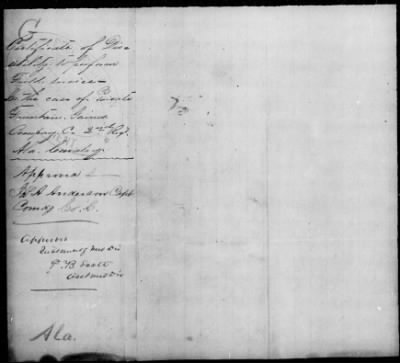 C
Certificate of Dis
ability to perform
Field service
In the case of Private
Fountain Gaines
Company C. 2nd Regt
Ala. Cavalry
Approved
Anderson Capt
Comdg Co. C.
Approved
P. B. Scott
Ala.